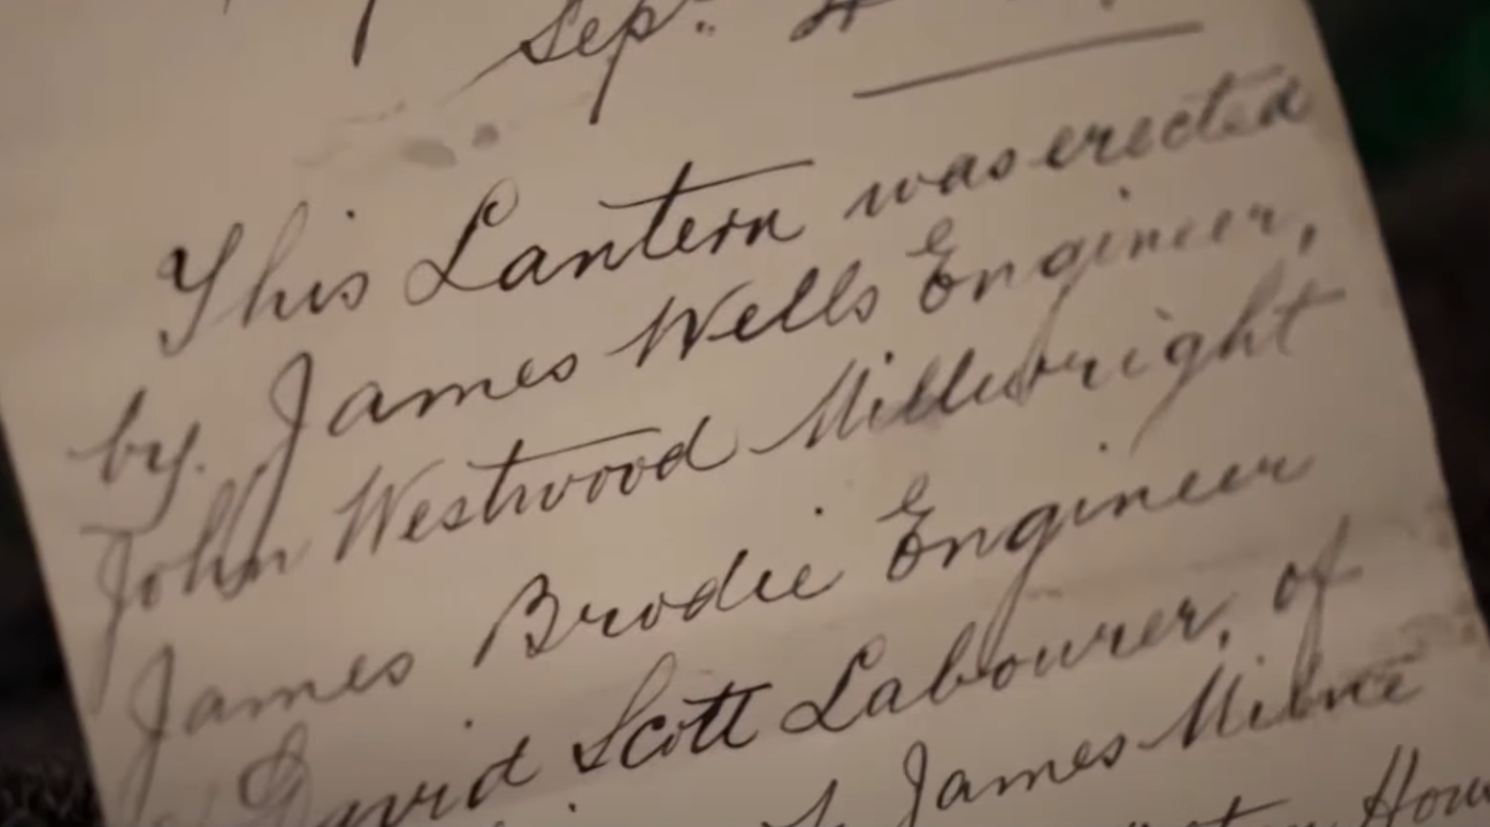 Sep. 4
This Lantern was erected
by. James Wells Engineer,
John Westwood Millwright
James Brodie Engineer
David Scott Labourer, of
James Milne